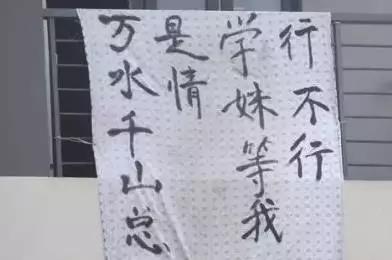 万水千山总
是情
学妹等我
行不行